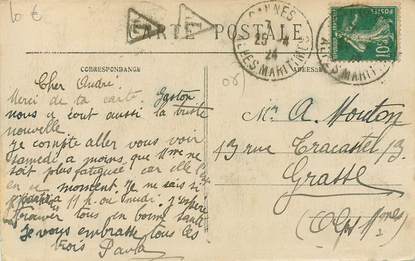 10 €
CARTE POSTALE
CANNES
25 -4
24
ALPES MARITIMES
10c
CORRESPONDANCE
Cher André
Merci de ta carte, Gaston
nous a écrit aussi la triste
nouvelle.
je compte aller vous voir
samedi a moins que Mme ne
soit plus fatiguée, car elle
en ce moment. Je ne sais si
11 h. ou midi. J'espère
trouver tous en bonne santé
Je vous embrasse tous les
trois Paula
Mr A. Mouton
43 rue Tracastel 13.
Grasse
(Alpes Mmes)